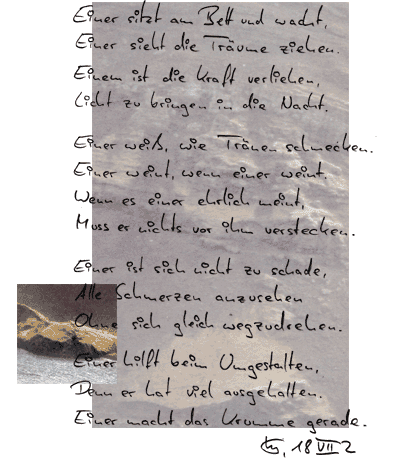 Einer sitzt am Bett und wacht,
Einer sieht die Träume ziehen.
Einem ist die Kraft verliehen,
Licht zu bringen in die Nacht.
Einer weiß, wie Tränen schmecken.
Einer weint, wenn einer weint.
Wenn es einer ehrlich meint,
Muss er nichts vor ihm verstecken.
Einer ist sich nicht zu schade,
Alle Schmerzen anzusehen
Ohne sich gleich wegzudrehen.
Einer hilft beim Umgestalten,
Denn er hat viel ausgehalten.
Einer macht das Krumme gerade.
18 VII 2